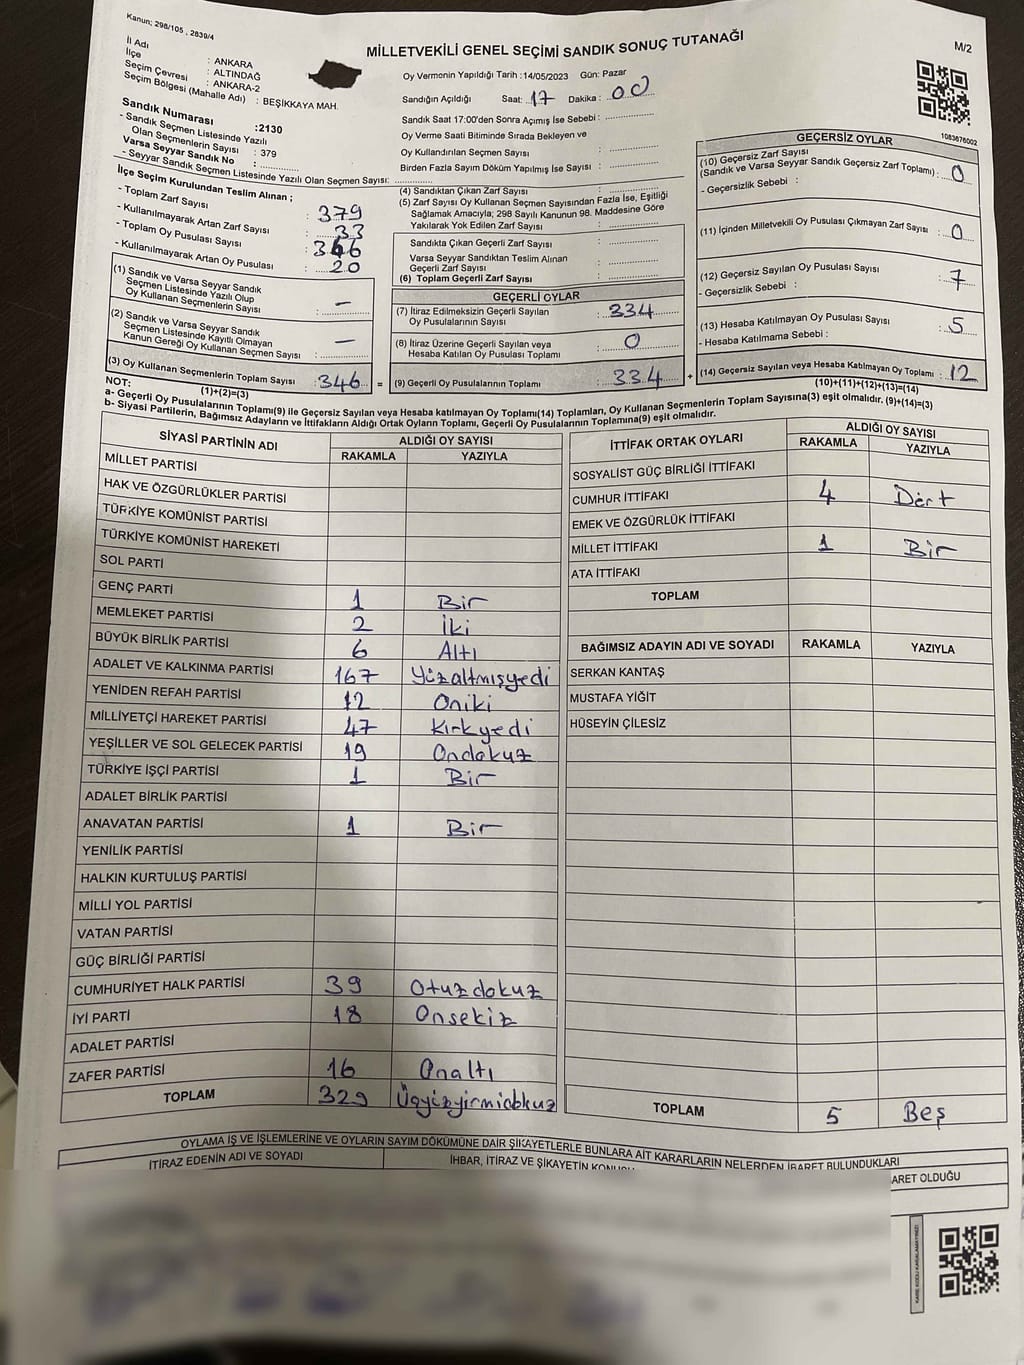 Kanun; 298/105 , 2839/4
MİLLETVEKİLİ GENEL SEÇİMİ SANDIK SONUÇ TUTANAĞI
M/2
İl Adı : ANKARA
İlçe : ALTINDAĞ
Seçim Çevresi : ANKARA-2
Seçim Bölgesi (Mahalle Adı) : BEŞİKKAYA MAH.
Sandık Numarası :2130
- Sandık Seçmen Listesinde Yazılı
Olan Seçmenlerin Sayısı : 379
Varsa Seyyar Sandık No :
- Seyyar Sandık Seçmen Listesinde Yazılı Olan Seçmen Sayısı:
İlçe Seçim Kurulundan Teslim Alınan ;
- Toplam Zarf Sayısı : 379
- Kullanılmayarak Artan Zarf Sayısı : 33
- Toplam Oy Pusulası Sayısı : 366
- Kullanılmayarak Artan Oy Pusulası : 20
(1) Sandık ve Varsa Seyyar Sandık
Seçmen Listesinde Yazılı Olup
Oy Kullanan Seçmenlerin Sayısı : —
(2) Sandık ve Varsa Seyyar Sandık
Seçmen Listesinde Kayıtlı Olmayan
Kanun Gereği Oy Kullanan Seçmen Sayısı : —
(3) Oy Kullanan Seçmenlerin Toplam Sayısı : 346 =
(1)+(2)=(3)
Oy Vermenin Yapıldığı Tarih :14/05/2023 Gün: Pazar
Sandığın Açıldığı Saat: 17 Dakika : 00
Sandık Saat 17:00'den Sonra Açımış İse Sebebi :
Oy Verme Saati Bitiminde Sırada Bekleyen ve
Oy Kullandırılan Seçmen Sayısı :
Birden Fazla Sayım Döküm Yapılmış İse Sayısı :
(4) Sandıktan Çıkan Zarf Sayısı :
(5) Zarf Sayısı Oy Kullanan Seçmen Sayısından Fazla İse, Eşitliği
Sağlamak Amacıyla; 298 Sayılı Kanunun 98. Maddesine Göre
Yakılarak Yok Edilen Zarf Sayısı :
Sandıkta Çıkan Geçerli Zarf Sayısı :
Varsa Seyyar Sandıktan Teslim Alınan
Geçerli Zarf Sayısı :
(6) Toplam Geçerli Zarf Sayısı :
GEÇERLİ OYLAR
(7) İtiraz Edilmeksizin Geçerli Sayılan
Oy Pusulalarının Sayısı : 334
(8) İtiraz Üzerine Geçerli Sayılan veya
Hesaba Katılan Oy Pusulası Toplamı : 0
(9) Geçerli Oy Pusulalarının Toplamı : 334 +
1083676002
GEÇERSİZ OYLAR
(10) Geçersiz Zarf Sayısı
(Sandık ve Varsa Seyyar Sandık Geçersiz Zarf Toplamı) : 0
- Geçersizlik Sebebi :
(11) İçinden Milletvekili Oy Pusulası Çıkmayan Zarf Sayısı : 0
(12) Geçersiz Sayılan Oy Pusulası Sayısı : 7
- Geçersizlik Sebebi :
(13) Hesaba Katılmayan Oy Pusulası Sayısı : 5
- Hesaba Katılmama Sebebi :
(14) Geçersiz Sayılan veya Hesaba Katılmayan Oy Toplamı : 12
(10)+(11)+(12)+(13)=(14)
NOT:
a- Geçerli Oy Pusulalarının Toplamı(9) ile Geçersiz Sayılan veya Hesaba katılmayan Oy Toplamı(14) Toplamları, Oy Kullanan Seçmenlerin Toplam Sayısına(3) eşit olmalıdır. (9)+(14)=(3)
b- Siyasi Partilerin, Bağımsız Adayların ve İttifakların Aldığı Ortak Oyların Toplamı, Geçerli Oy Pusulalarının Toplamına(9) eşit olmalıdır.
SİYASİ PARTİNİN ADI ALDIĞI OY SAYISI
RAKAMLA YAZIYLA
MİLLET PARTİSİ
HAK VE ÖZGÜRLÜKLER PARTİSİ
TÜRKİYE KOMÜNİST PARTİSİ
TÜRKİYE KOMÜNİST HAREKETİ
SOL PARTİ
GENÇ PARTİ 1 Bir
MEMLEKET PARTİSİ 2 İki
BÜYÜK BİRLİK PARTİSİ 6 Altı
ADALET VE KALKINMA PARTİSİ 167 Yüzaltmışyedi
YENİDEN REFAH PARTİSİ 12 Oniki
MİLLİYETÇİ HAREKET PARTİSİ 47 Kırkyedi
YEŞİLLER VE SOL GELECEK PARTİSİ 19 Ondokuz
TÜRKİYE İŞÇİ PARTİSİ 1 Bir
ADALET BİRLİK PARTİSİ
ANAVATAN PARTİSİ 1 Bir
YENİLİK PARTİSİ
HALKIN KURTULUŞ PARTİSİ
MİLLİ YOL PARTİSİ
VATAN PARTİSİ
GÜÇ BİRLİĞİ PARTİSİ
CUMHURİYET HALK PARTİSİ 39 Otuzdokuz
İYİ PARTİ 18 Onsekiz
ADALET PARTİSİ
ZAFER PARTİSİ 16 Onaltı
TOPLAM 329 Üçyüzyirmidokuz
İTTİFAK ORTAK OYLARI ALDIĞI OY SAYISI
RAKAMLA YAZIYLA
SOSYALİST GÜÇ BİRLİĞİ İTTİFAKI
CUMHUR İTTİFAKI 4 Dört
EMEK VE ÖZGÜRLÜK İTTİFAKI
MİLLET İTTİFAKI 1 Bir
ATA İTTİFAKI
TOPLAM
BAĞIMSIZ ADAYIN ADI VE SOYADI RAKAMLA YAZIYLA
SERKAN KANTAŞ
MUSTAFA YİĞİT
HÜSEYİN ÇİLESİZ
TOPLAM 5 Beş
OYLAMA İŞ VE İŞLEMLERİNE VE OYLARIN SAYIM DÖKÜMÜNE DAİR ŞİKAYETLERLE BUNLARA AİT KARARLARIN NELERDEN İBARET BULUNDUKLARI
İTİRAZ EDENİN ADI VE SOYADI İHBAR, İTİRAZ VE ŞİKAYETİN
ARET OLDUĞU